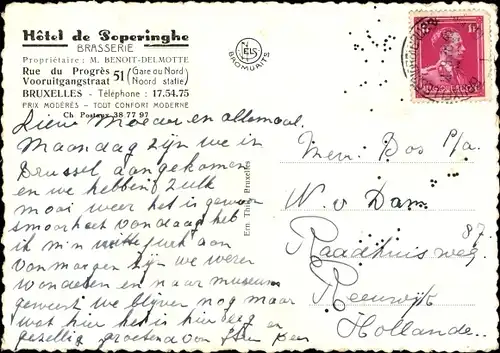 Hôtel de Poperinghe
BRASSERIE
Propriétaire : M. BENOIT-DELMOTTE
Rue du Progrès 51 (Gare du Nord)
Vooruitgangstraat 51 (Noord statie)
BRUXELLES - Téléphone : 17.54.75
PRIX MODÉRÉS - TOUT CONFORT MODERNE
Ch Postaux 38 77 97
NELS
BROMURITE
Ern. Thill, Bruxelles
Lieve Moeder en allemaal.
Maandag zijn we in
Brussel aangekomen
en we hebben zulk
mooi weer het is gewoon
smoorheet vandaag heb
ik m'n witte jurk aan
Van morgen zijn we weer
wandelen en naar museum
geweest we blijven nog maar
wat hier het is hier erg
gezellig groetend van
Mern. Bos p/a.
N. v Dam.
Raadhuisweg. 87
Reeuwijk
Hollande.